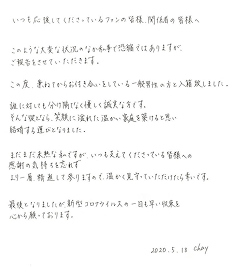 いつも応援してくださっているファンの皆様、関係者の皆様へ
このような大変な状況のなか私事で恐縮ではありますが、
ご報告をさせていただきます。
この度、兼ねてからお付き合いをしている一般男性の方と入籍致しました。
誰に対しても分け隔てなく優しく誠実な方です。
そんな彼となら、笑顔に溢れた温かい家庭を築けると思い
結婚する運びとなりました。
まだまだ未熟な私ですが、いつも支えてくださっている皆様への
感謝の気持ちを忘れず
より一層 精進して参りますので、温かく見守っていただけたら幸いです。
最後となりましたが新型コロナウイルスの一日も早い収束を
心から願っております。
2020.5.18 chay